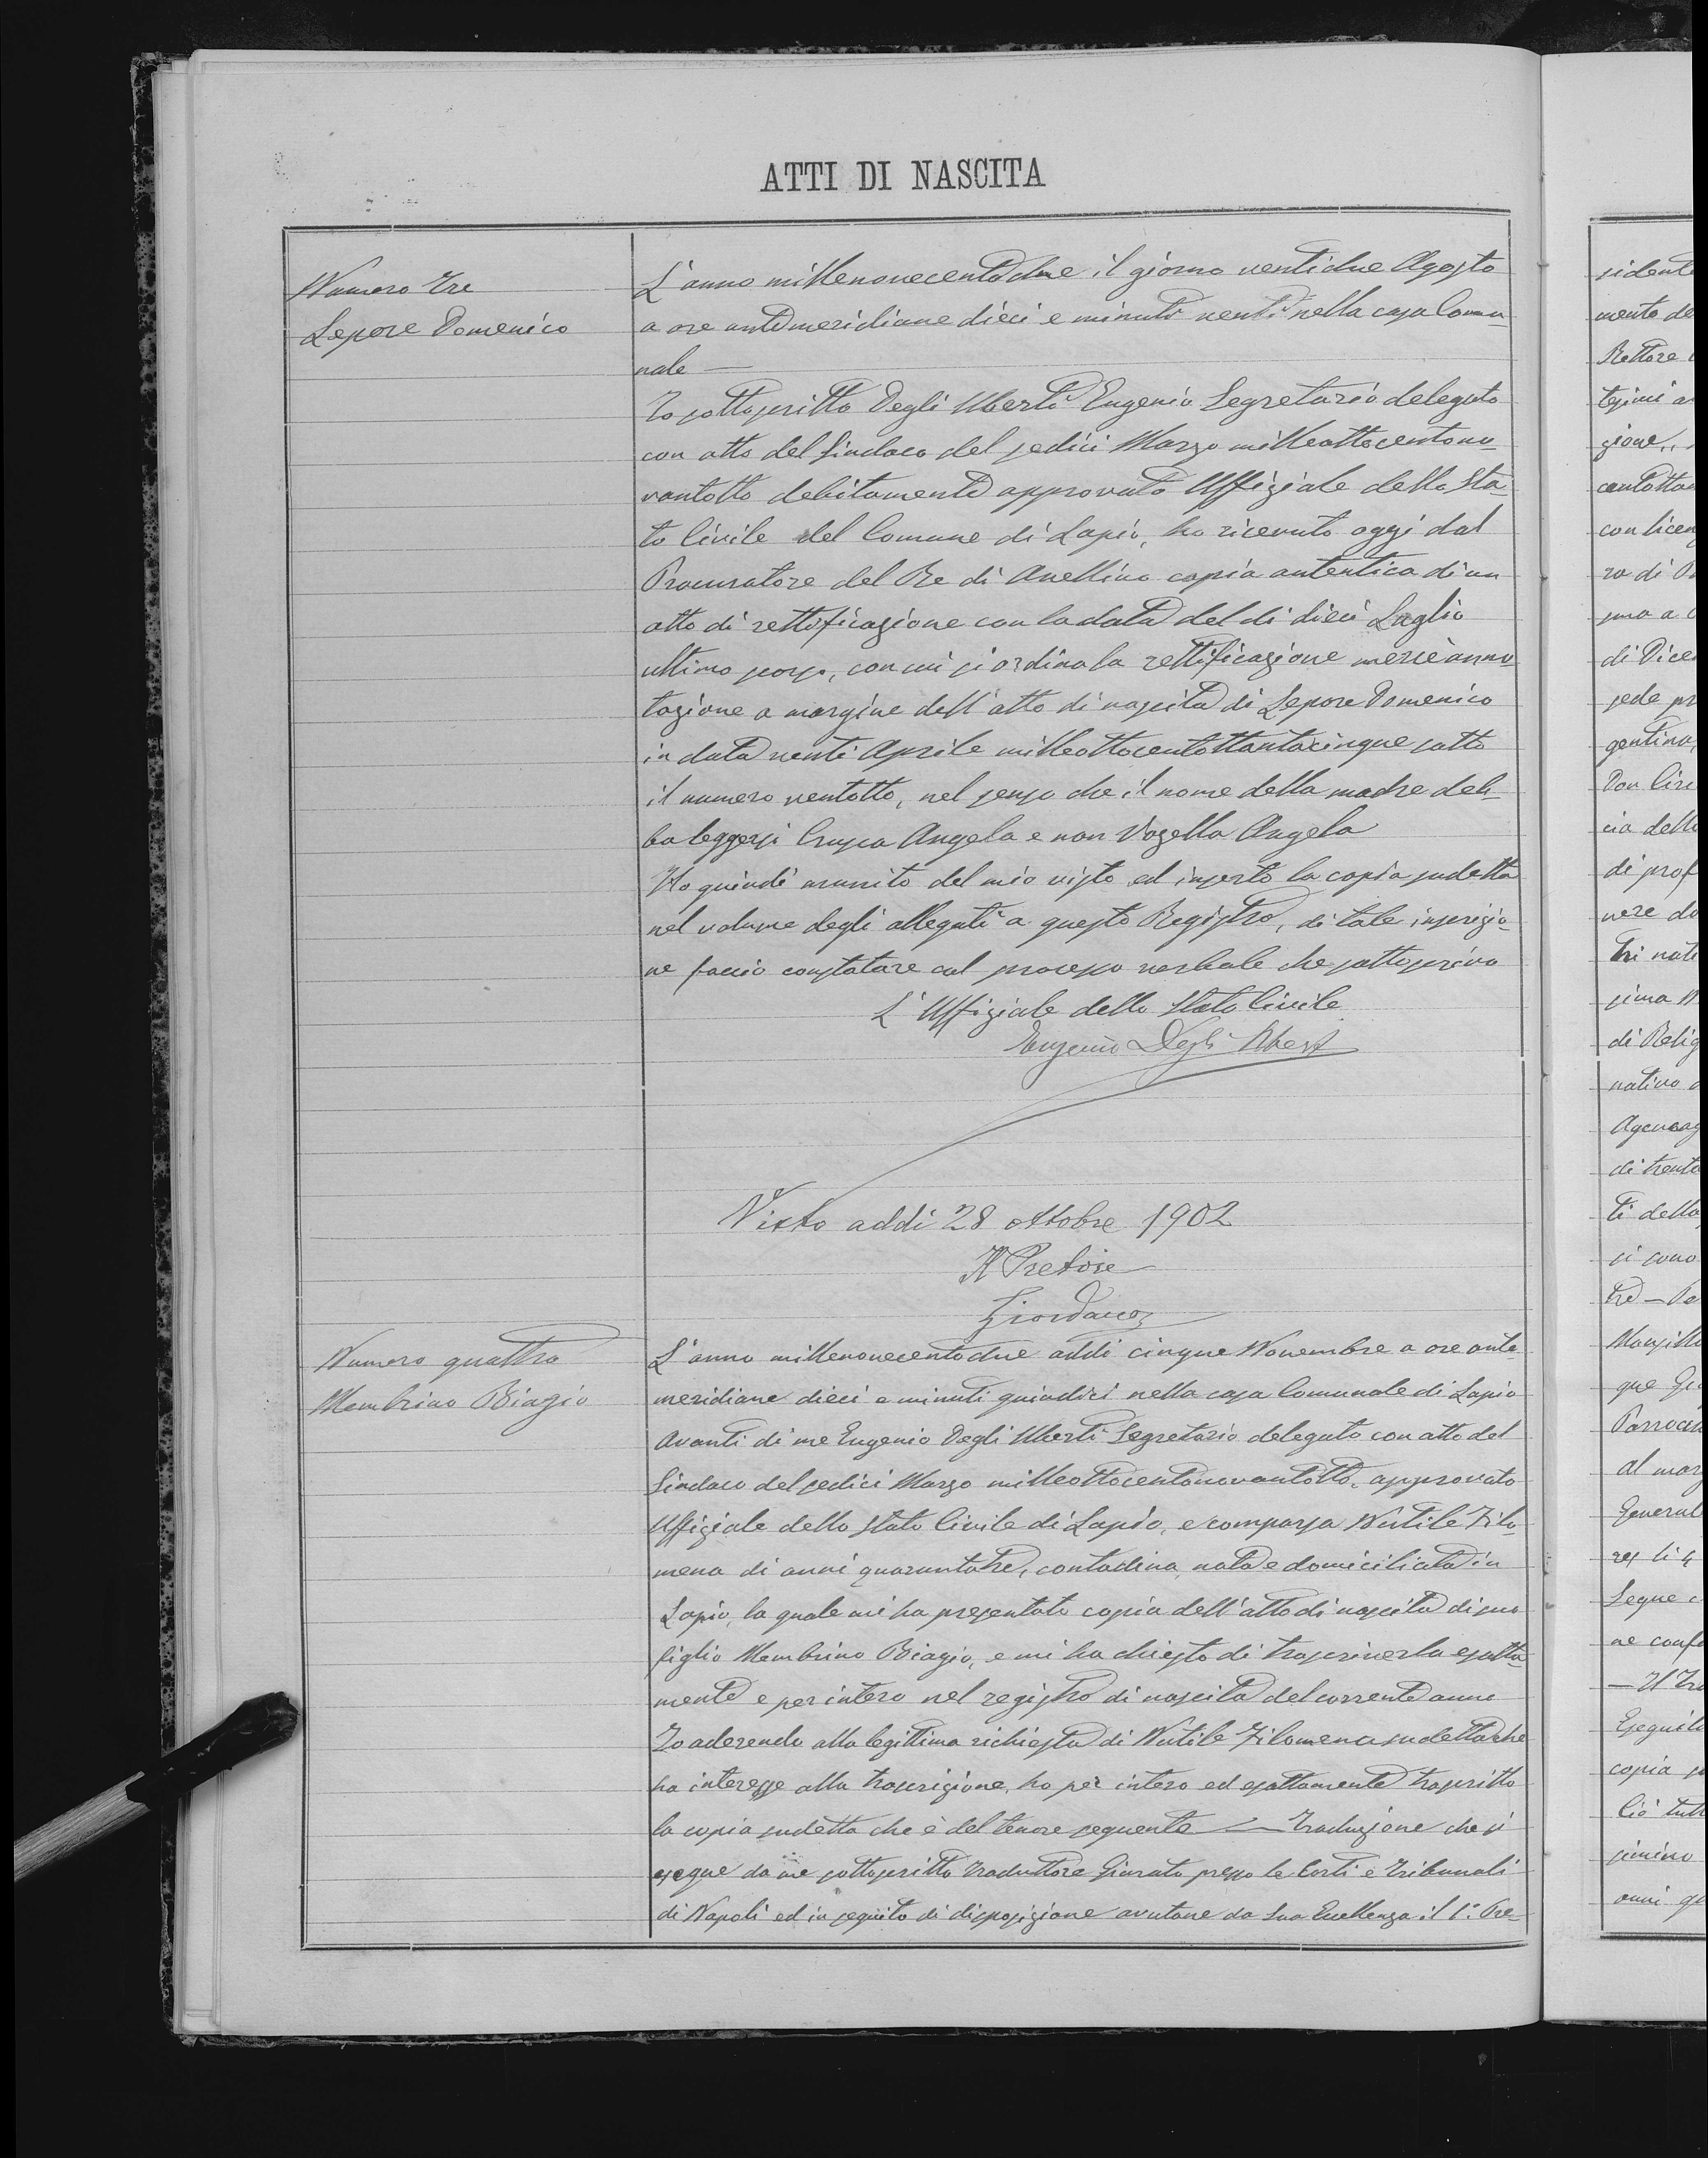 ATTI DI NASCITA
Numero Tre
Lepore Domenico
L'anno millenovecentodue il giorno ventidue Agosto
a ore antimeridiane dieci e minuti venti nella casa Comu-
nale —
Io sottoscritto Degli Uberti Eugenio Segretario delegato
con atto del Sindaco del sedici Marzo milleottocentono-
vantotto debitamente approvato Uffiziale dello Sta-
to Civile del Comune di Lapio, ho ricevuto oggi dal
Procuratore del Re di Avellino copia autentica di un
atto di rettificazione con la data del di dieci Luglio
ultimo scorso, con cui si ordina la rettificazione mercè anno-
tazione a margine dell'atto di nascita di Lepore Domenico
in data venti Aprile milleottocentottantacinque sotto
il numero ventotto, nel senso che il nome della madre deb-
ba leggersi Angela e non Angela
Ho quindi munito del mio visto ed inserto la copia sudetta
nel volume degli allegati a questo Registro, di tale inserzio-
ne faccio constatare col processo verbale che sottoscrivo
L'Uffiziale dello Stato Civile
Eugenio Degli Uberti
Visto addi 28 ottobre 1902
Il Pretore
Giordano
Numero quattro
Membrino Biagio
L'anno millenovecentodue addi cinque Novembre a ore ante-
meridiane dieci e minuti quindici nella casa Comunale di Lapio
Avanti di me Eugenio Degli Uberti Segretario delegato con atto del
Sindaco del sedici Marzo milleottocentonovantotto, approvato
Uffiziale dello Stato Civile di Lapio, è comparsa Nutile Filo-
mena di anni quarantatre, contadina, nata e domiciliata in
Lapio, la quale mi ha presentato copia dell'atto di nascita di suo
figlio Membrino Biagio, e mi ha chiesto di trascriverla esatta-
mente e per intero nel registro di nascita del corrente anno
Io aderendo alla legittima richiesta di Nutile Filomena sudetta che
ha interesse alla trascrizione, ho per intero ed esattamente trascritto
la copia sudetta che è del tenore seguente — Traduzione che si
esegue da me sottoscritto Traduttore Giurato presso le Corti e Tribunali
di Napoli ed in seguito di disposizione avutane da Sua Eccellenza il 1.° Pre-